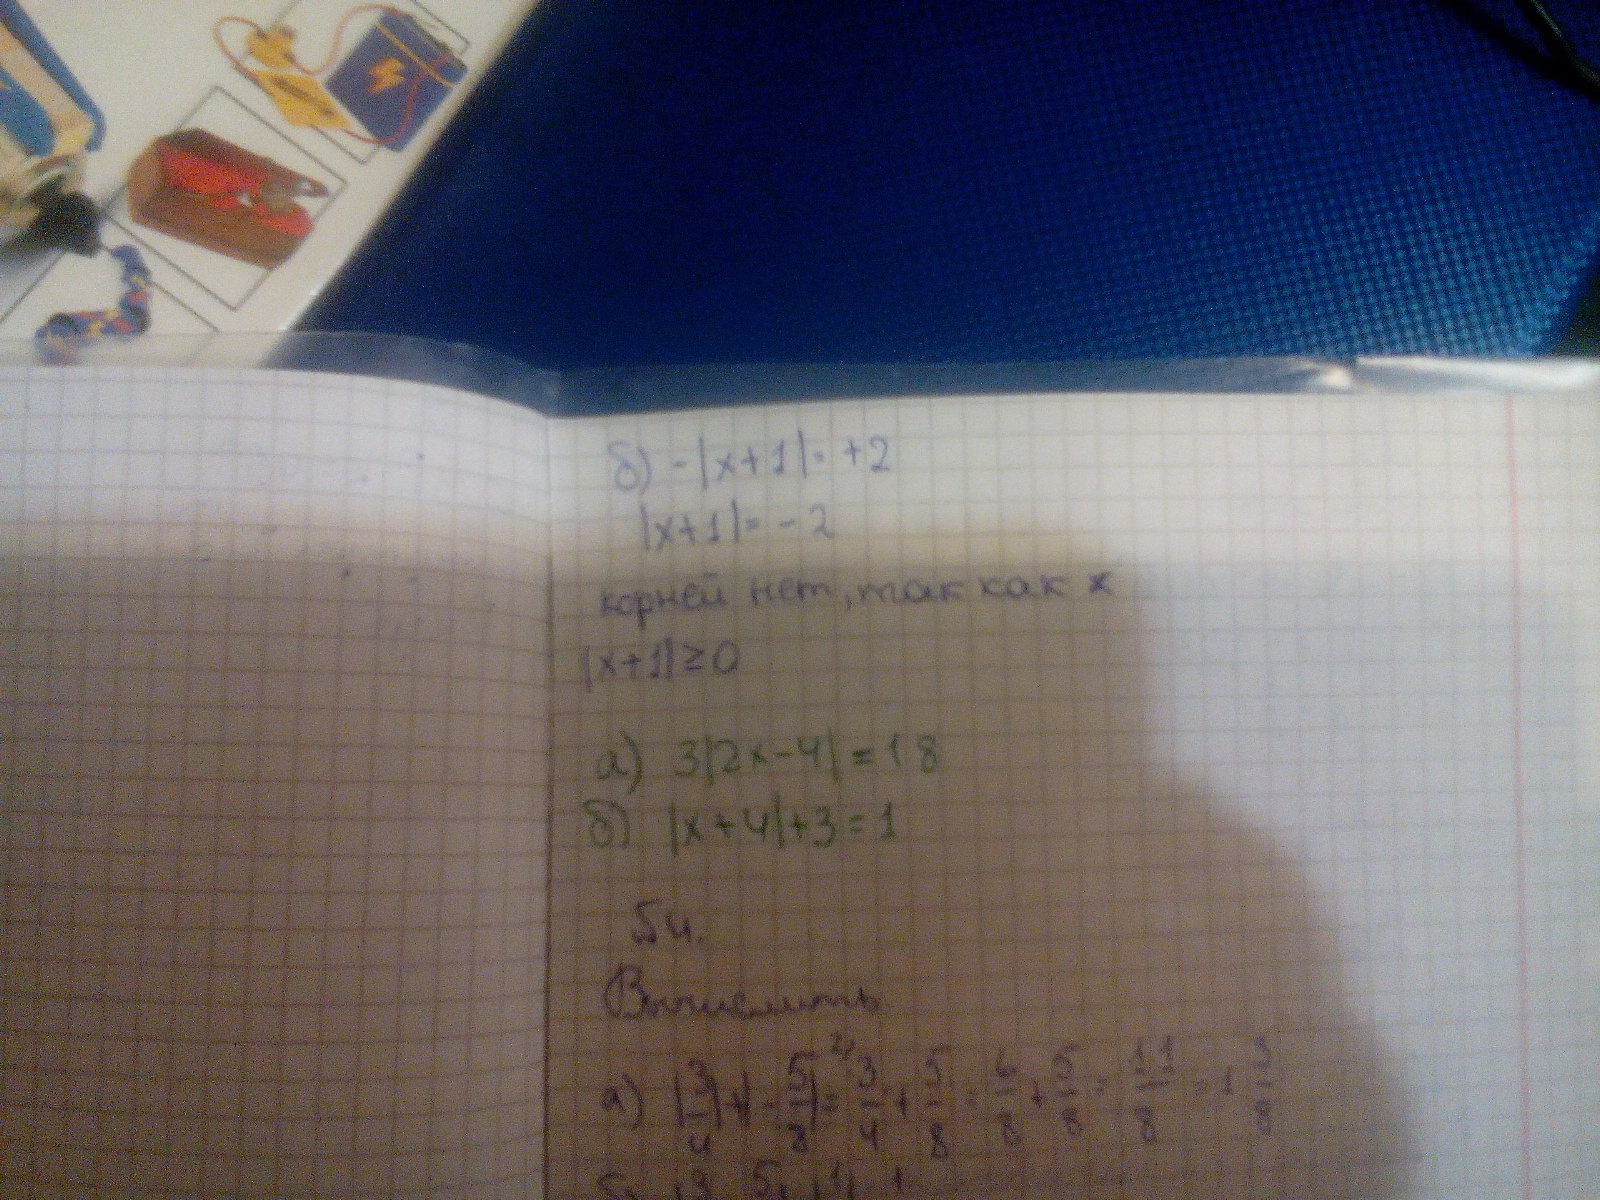 б) -|x+1|= +2
|x+1|= -2
корней нет, так как x
|x+1|≥0
а) 3|2x-4|=18
б) |x+4|+3=1
54.
Вычислить
а) |3/4|+|-5/8|= 3/4 + 5/8 = 6/8 + 5/8 = 11/8 = 1 3/8